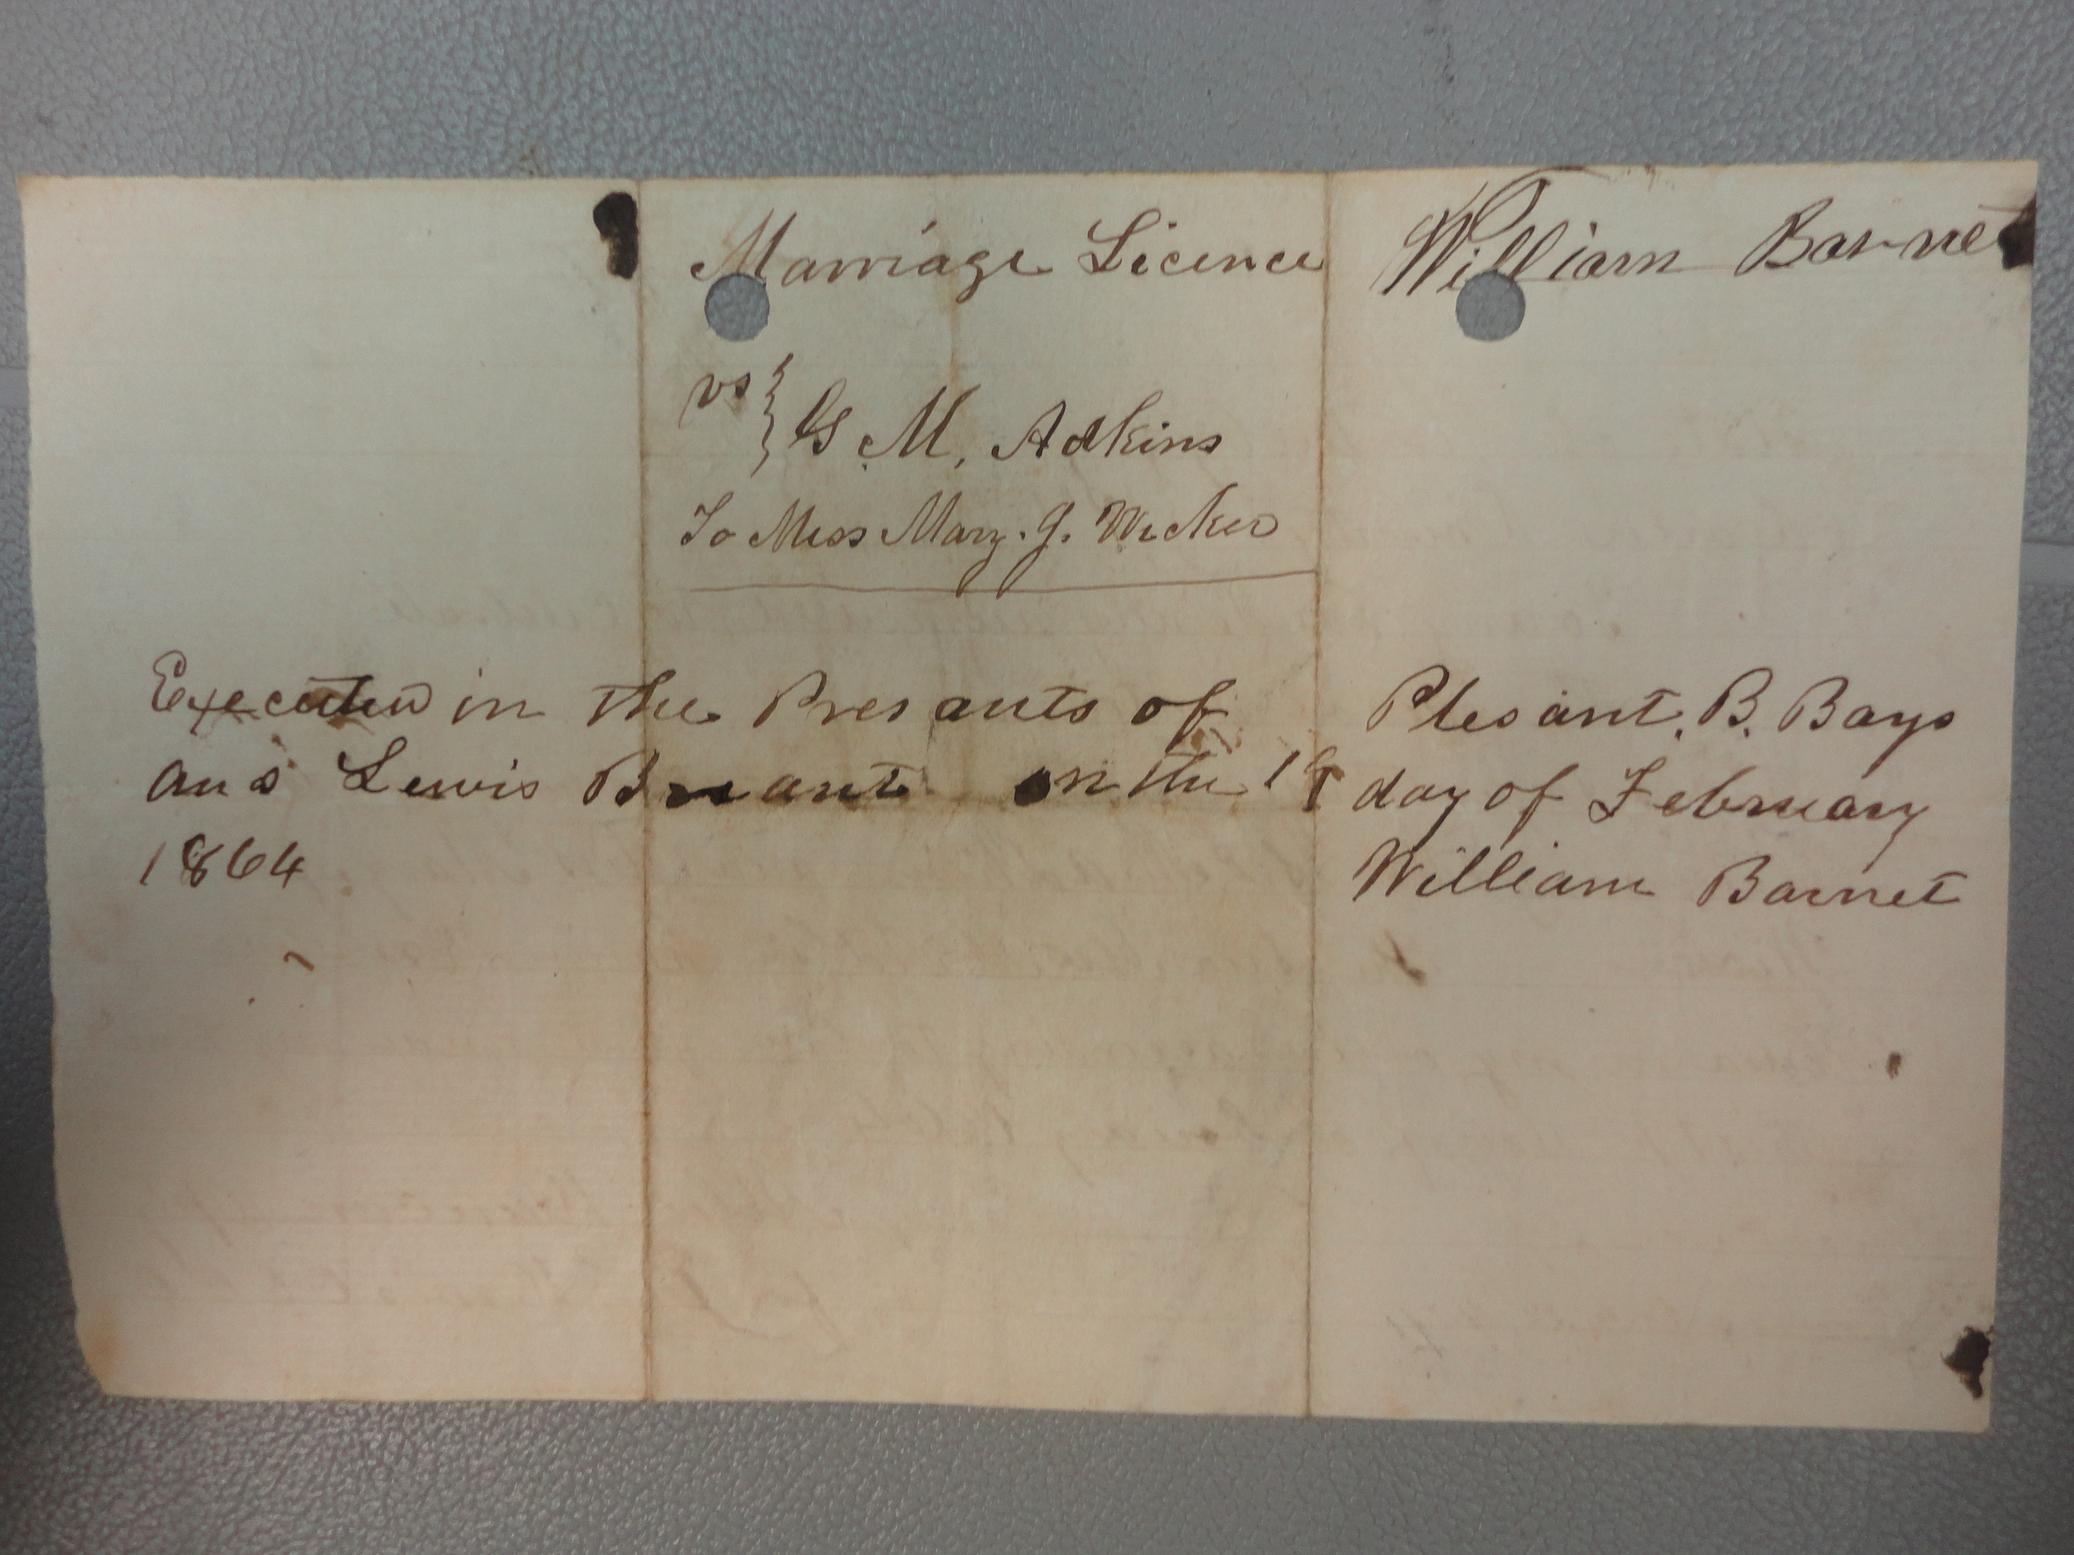 Marriage Licence
William Barnet
vs
G. M. Adkins
To Miss Mary. J. Wicker
Executed in the Presants of Plesant. B. Bays
and Lewis Bruant on the 18 day of February
1864
William Barnet